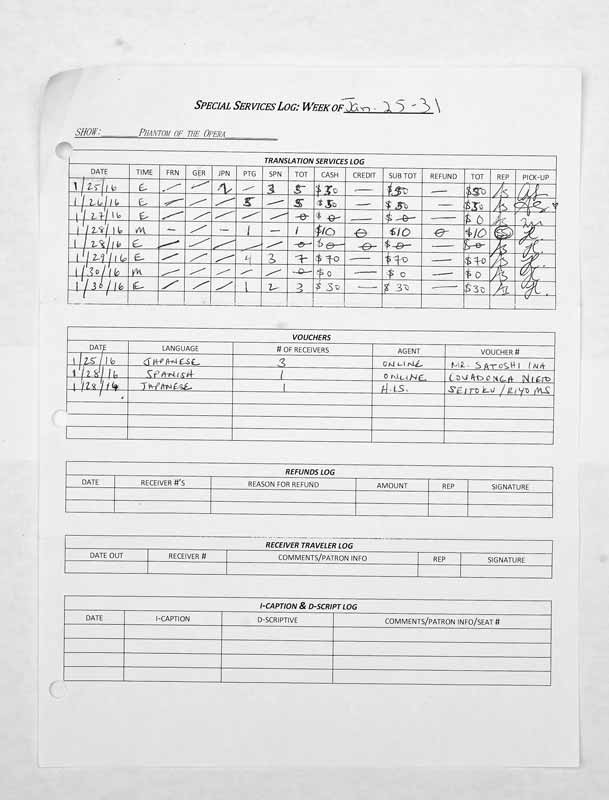 SPECIAL SERVICES LOG: WEEK OF Jan. 25-31
SHOW: PHANTOM OF THE OPERA
TRANSLATION SERVICES LOG
DATE TIME FRN GER JPN PTG SPN TOT CASH CREDIT SUB TOT REFUND TOT REP PICK-UP
1/25/16 E / / 2 - 3 5 $50 — $50 — $50
1/26/16 E / / / 5 - 5 $50 — $50 — $50
1/27/16 E / / / / / 0 $0 — $0 — $0
1/28/16 M - / - 1 - 1 $10 0 $10 0 $10
1/28/16 E / / / / / 0 0 0 0 — $0
1/29/16 E / / / 4 3 7 $70 — $70 — $70
1/30/16 M / / / / / 0 $0 — $0 — $0
1/30/16 E / / / 1 2 3 $30 — $30 — $30
VOUCHERS
DATE LANGUAGE # OF RECEIVERS AGENT VOUCHER #
1/25/16 JAPANESE 3 ONLINE MR. SATOSHI INA
1/28/16 SPANISH 1 ONLINE
1/28/16 JAPANESE 1 H.I.S. SEITOKU/RIYO MS
REFUNDS LOG
DATE RECEIVER #'S REASON FOR REFUND AMOUNT REP SIGNATURE
RECEIVER TRAVELER LOG
DATE OUT RECEIVER # COMMENTS/PATRON INFO REP SIGNATURE
I-CAPTION & D-SCRIPT LOG
DATE I-CAPTION D-SCRIPTIVE COMMENTS/PATRON INFO/SEAT #